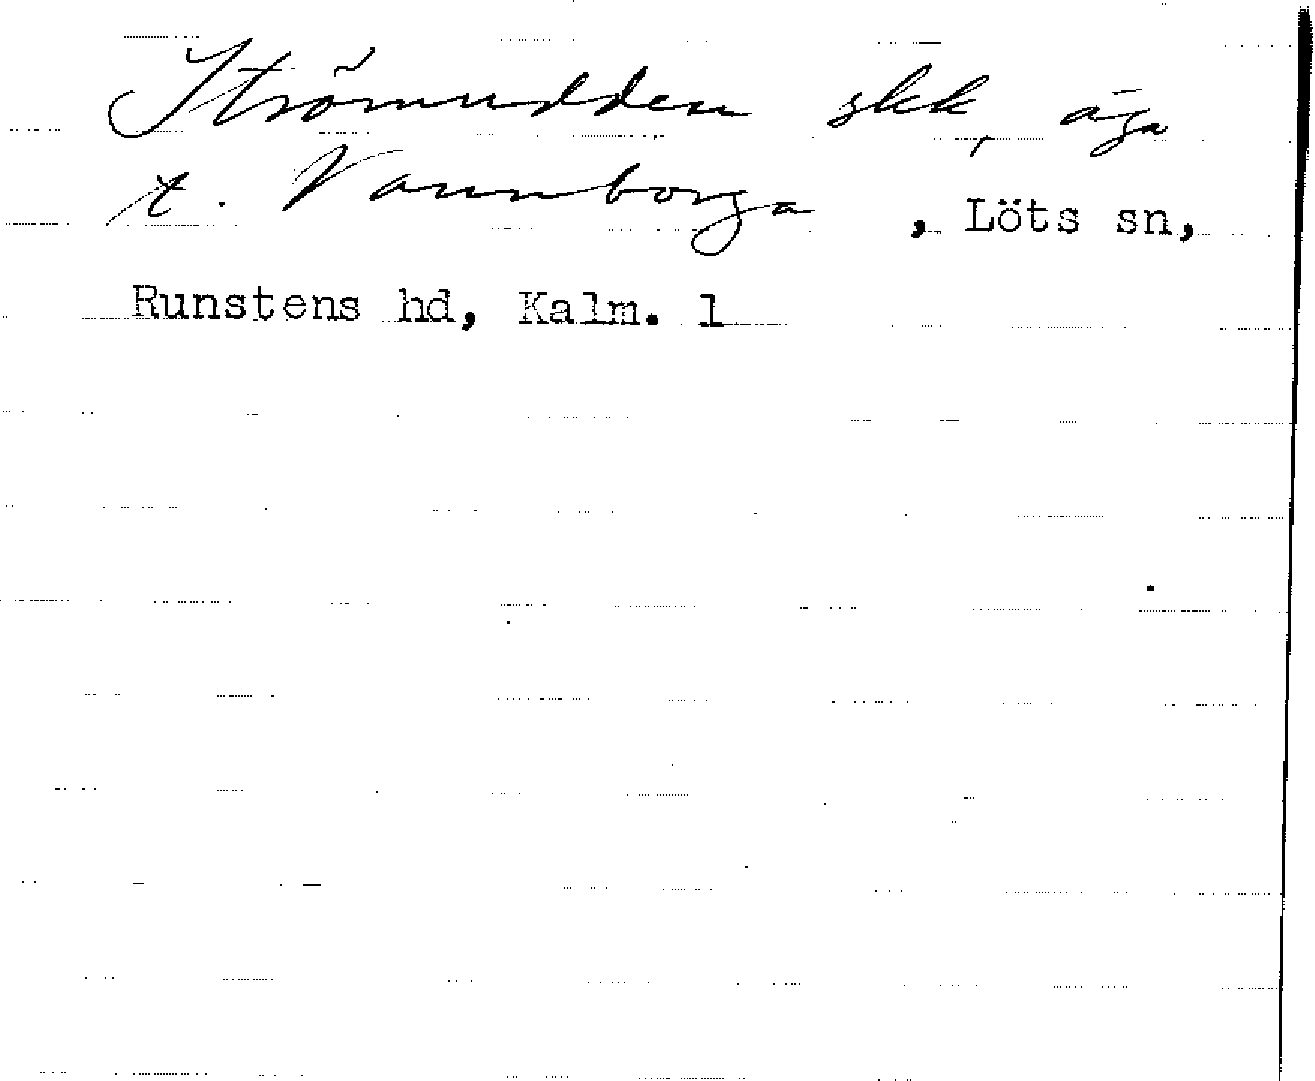 Strömudden skk, äga
t. Vannborga, Löts sn,
Runstens hd, Kalm. l